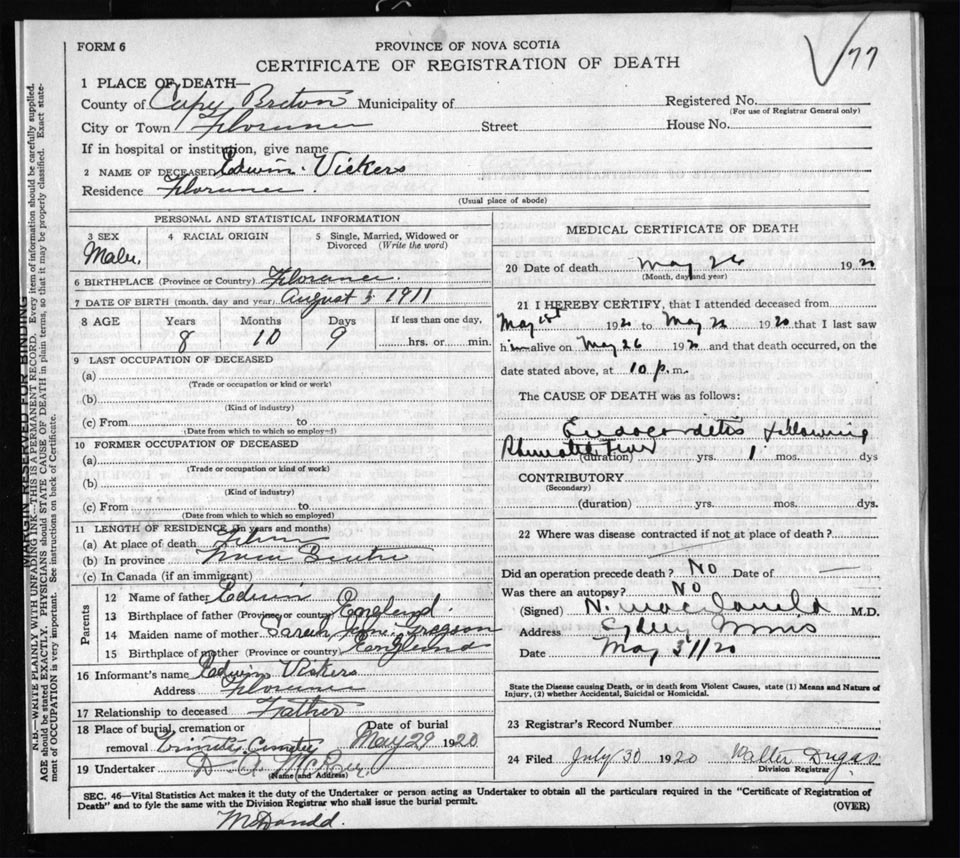 FORM 6
PROVINCE OF NOVA SCOTIA
CERTIFICATE OF REGISTRATION OF DEATH
77
1 PLACE OF DEATH—
County of Cape Breton Municipality of
Registered No.
(For use of Registrar General only)
City or Town Florence Street House No.
If in hospital or institution, give name
2 NAME OF DECEASED Edwin Vickers
Residence Florence.
(Usual place of abode)
PERSONAL AND STATISTICAL INFORMATION
3 SEX
Male.
4 RACIAL ORIGIN
5 Single, Married, Widowed or Divorced (Write the word)
6 BIRTHPLACE (Province or Country) Florence.
7 DATE OF BIRTH (month, day and year) August 5 1911
8 AGE Years Months Days If less than one day,
8 10 9 hrs. or min.
9 LAST OCCUPATION OF DECEASED
(a)
(Trade or occupation or kind or work)
(b)
(Kind of industry)
(c) From to
(Date from which to which so employed)
10 FORMER OCCUPATION OF DECEASED
(a)
(Trade or occupation or kind of work)
(b)
(Kind of industry)
(c) From to
(Date from which to which so employed)
11 LENGTH OF RESIDENCE (In years and months)
(a) At place of death
(b) In province Nova Scotia
(c) In Canada (if an immigrant)
Parents
12 Name of father Edwin
13 Birthplace of father (Province or country) England.
14 Maiden name of mother Sarah Jane
15 Birthplace of mother (Province or country) England
16 Informant's name Edwin Vickers
Address Florence
17 Relationship to deceased Father
18 Place of burial, cremation or Date of burial
removal Trinity Cemetery May 29 1920
19 Undertaker D. A.
(Name and Address)
MEDICAL CERTIFICATE OF DEATH
20 Date of death May 26 1920
(Month, day and year)
21 I HEREBY CERTIFY, that I attended deceased from
May 1st 1920 to May 26 1920 that I last saw
him alive on May 26 1920 and that death occurred, on the
date stated above, at 10 p.m.
The CAUSE OF DEATH was as follows:
Endocarditis following
Rheumatic Fever
(duration) yrs. 1 mos. dys
CONTRIBUTORY
(Secondary)
(duration) yrs. mos. dys.
22 Where was disease contracted if not at place of death?
Did an operation precede death? No Date of
Was there an autopsy? No
(Signed) N. MacDonald M.D.
Address Sydney Mines
Date May 31/20
State the Disease causing Death, or in death from Violent Causes, state (1) Means and Nature of
Injury, (2) whether Accidental, Suicidal or Homicidal.
23 Registrar's Record Number
24 Filed July 30 1920 Walter Dugas
Division Registrar
SEC. 46—Vital Statistics Act makes it the duty of the Undertaker or person acting as Undertaker to obtain all the particulars required in the "Certificate of Registration of
Death" and to fyle the same with the Division Registrar who shall issue the burial permit.
(OVER)
McDonald.
MARGIN RESERVED FOR BINDING
N.B.—WRITE PLAINLY WITH UNFADING INK—THIS IS A PERMANENT RECORD. Every item of information should be carefully supplied.
AGE should be stated EXACTLY. PHYSICIANS should STATE CAUSE OF DEATH in plain terms, so that it may be properly classified. Exact state-
ment of OCCUPATION is very important. See instructions on back of Certificate.